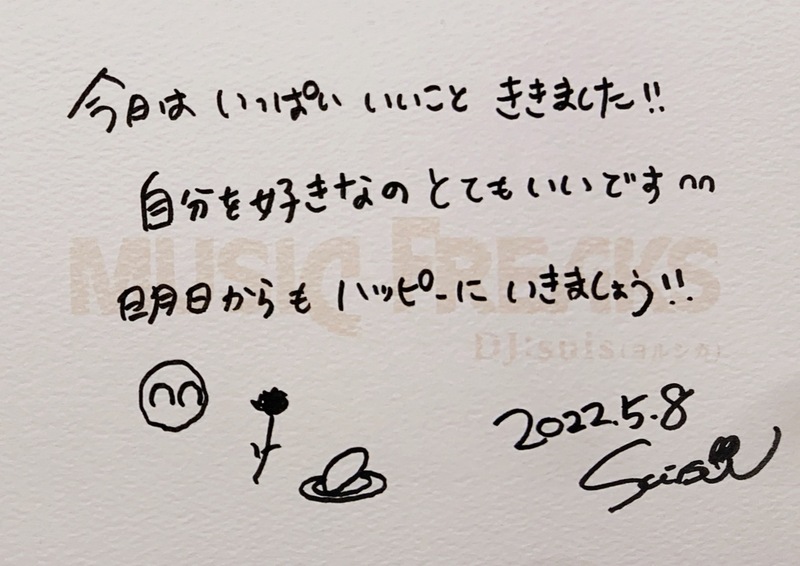 今日は いっぱい いいこと ききました!!
自分を好きなの とてもいいです
明日からも ハッピーに いきましょう!!
MUSIQ FREAKS
DJ:suis(ヨルシカ)
2022.5.8
Suis